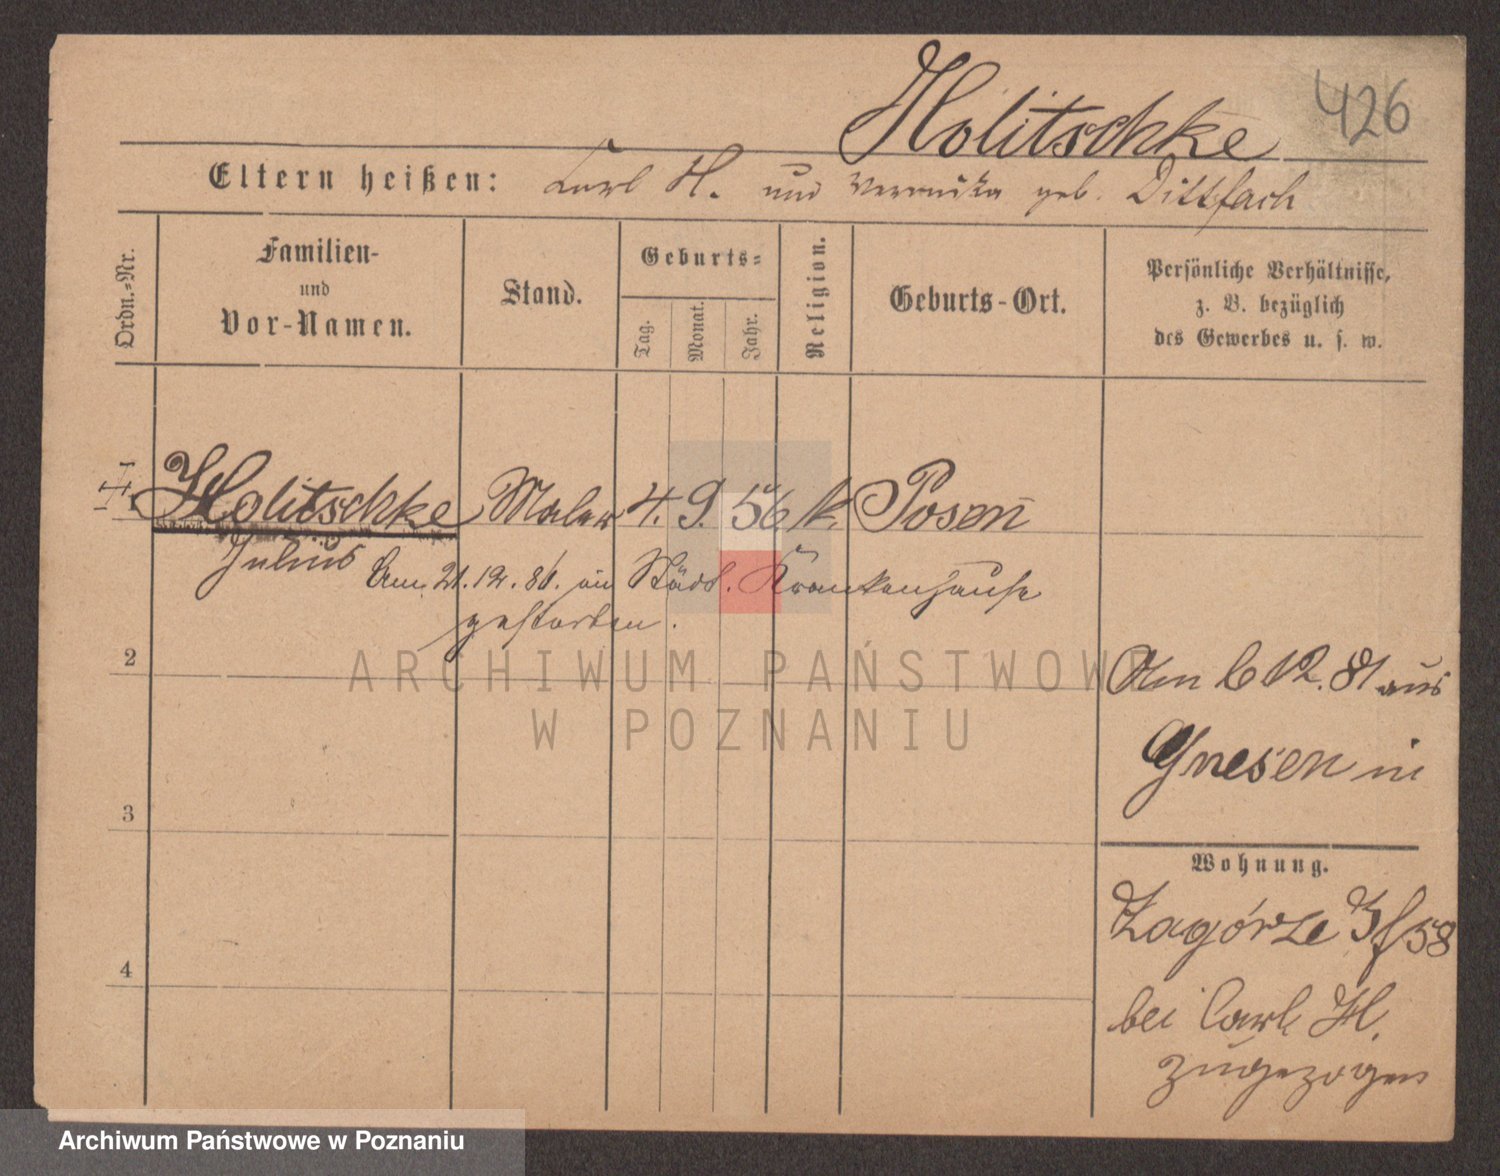 426
Holitschke
Eltern heißen: Carl H. und Veronika geb. Dittfach
Ordn.-Nr.
Familien-
und
Vor-Namen.
Stand.
Geburts-
Tag.
Monat.
Jahr.
Religion.
Geburts-Ort.
Persönliche Verhältnisse,
z. B. bezüglich
des Gewerbes u. s. w.
Holitschke Maler 4. 9. 56 k. Posen
Julius
Am 21.12.86. im Städt. Krankenhause
gestorben.
2
3
4
Am 6 12. 81 aus
Gnesen in
Wohnung.
Zagórze 3f 58
bei Carl H.
zugezogen
ARCHIWUM PAŃSTWOWE
W POZNANIU
Archiwum Państwowe w Poznaniu